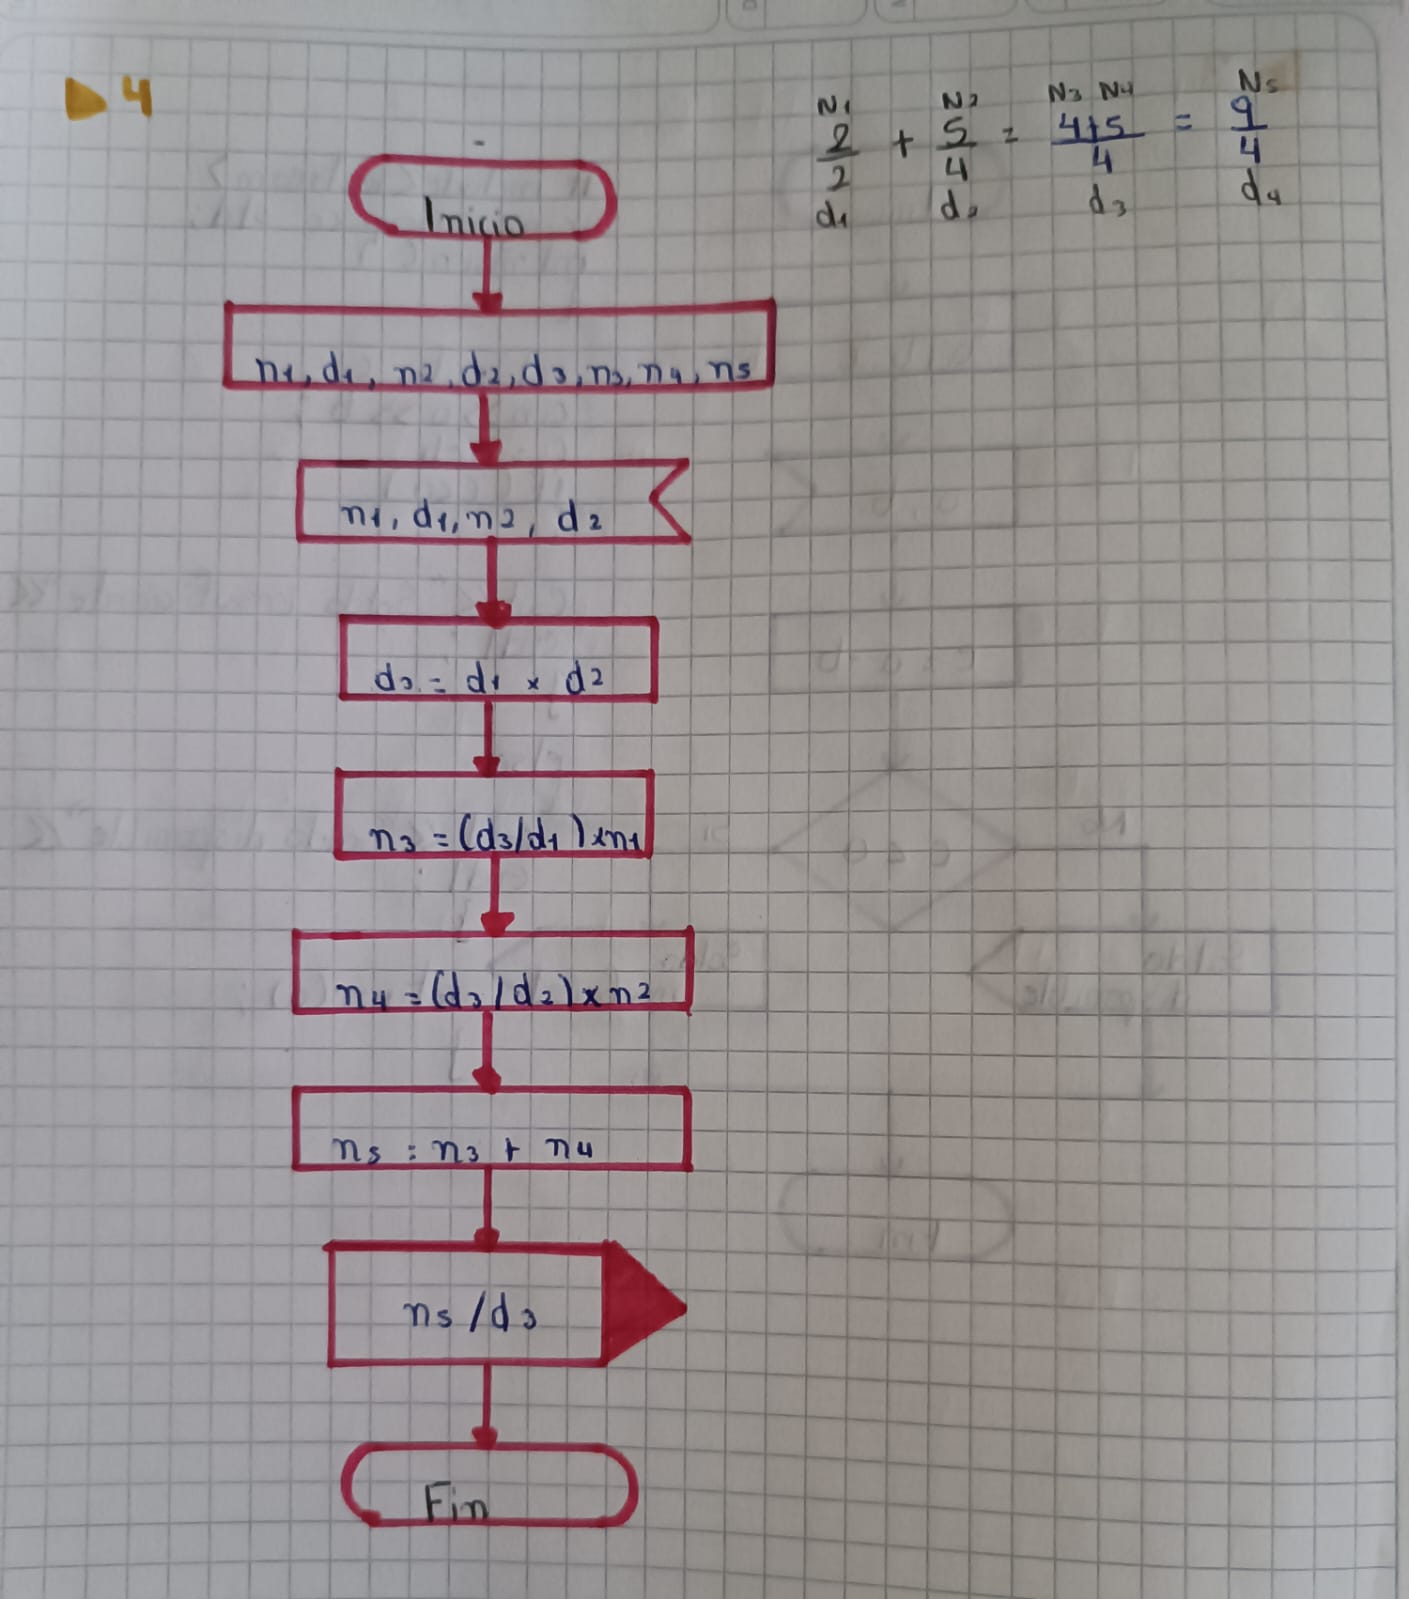 ▶ 4
N1 N2 N3 N4 N5
2/2 + 5/4 = 4+5/4 = 9/4
d1 d2 d3 d4
Inicio
n1, d1, n2, d2, d3, n3, n4, n5
n1, d1, n2, d2
d3 = d1 x d2
n3 = (d3/d1) x n1
n4 = (d3/d2) x n2
n5 = n3 + n4
n5/d3
Fin